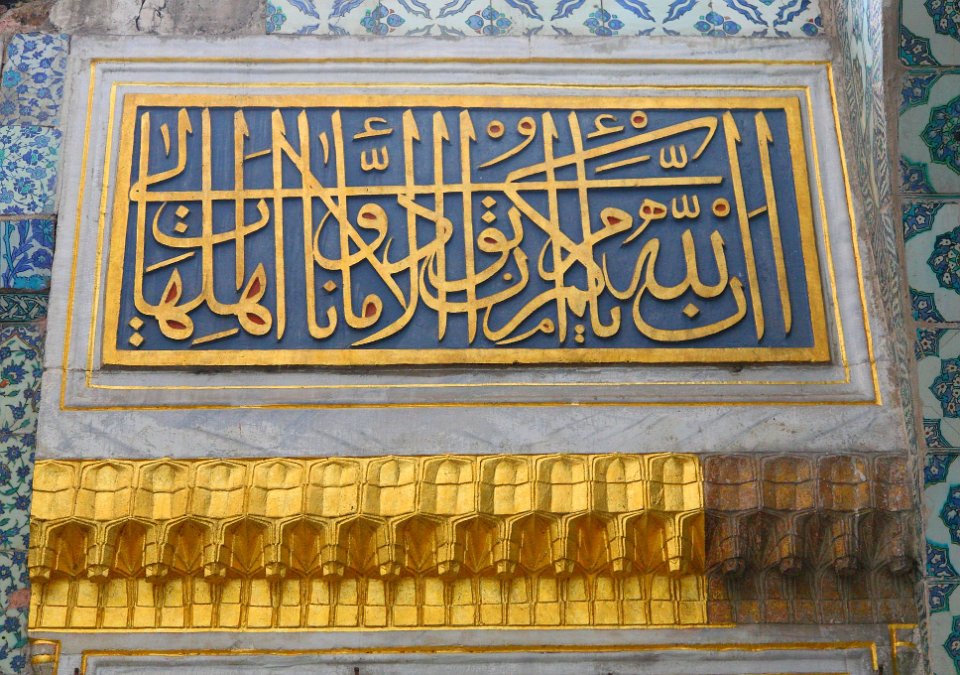 انّ اللّه يأمركم أن تؤدّوا الامانات الى اهلها